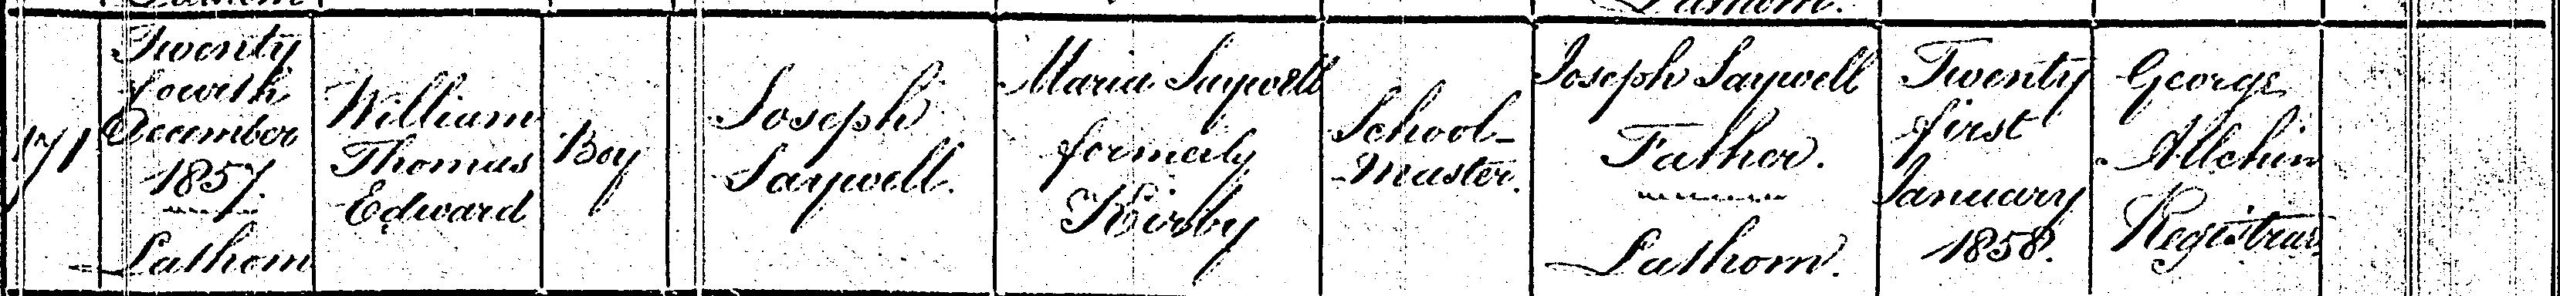 171
Twenty
fourth
December
1857.
Lathom
William
Thomas
Edward
Boy
Joseph
Saywell.
Maria Saywell
formerly
Kirby
School-
Master.
Joseph Saywell
Father.
Lathom.
Twenty
first
January
1858.
George
Allchin
Registrar